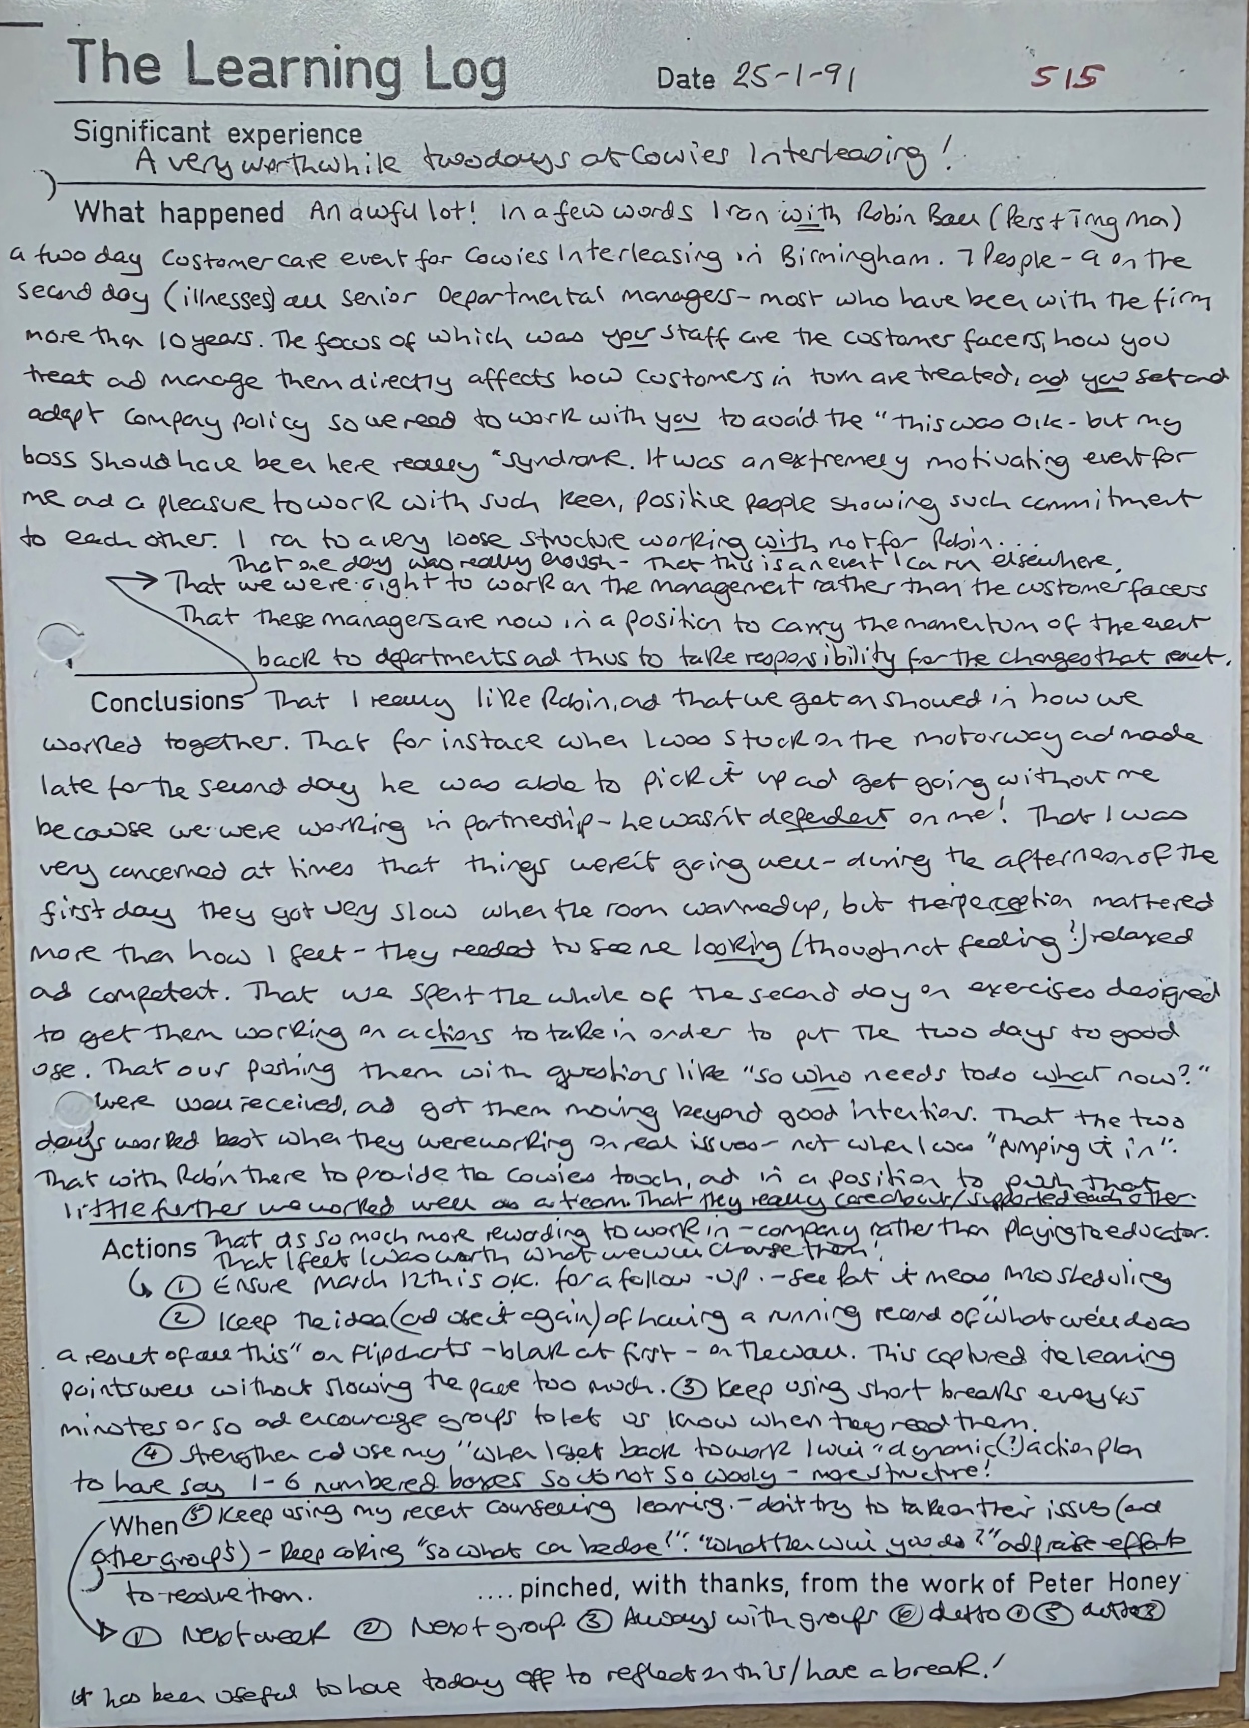 The Learning Log Date 25-1-91 515
Significant experience
A very worthwhile two days at Cowies Interleasing!
What happened An awful lot! In a few words I ran with Robin (Pers + Tmg Man)
a two day customer care event for Cowies Interleasing in Birmingham. 7 People - 9 on the
second day (illnesses) all senior Departmental managers - most who have been with the firm
more than 10 years. The focus of which was your staff are the customer facers, how you
treat ad manage them directly affects how customers in turn are treated, ad you set and
adapt company policy so we need to work with you to avoid the "this was O.K - but my
boss should have been here really" syndrome. It was an extremely motivating event for
me ad a pleasure to work with such keen, positive people showing such commitment
to each other. I ran to a very loose structure working with not for Robin...
That one day was really enough - That this is an event I can run elsewhere.
That we were right to work on the management rather than the customer facers
That these managers are now in a position to carry the momentum of the event
back to departments ad thus to take responsibility for the changes that result.
Conclusions That I really like Robin, ad that we get on showed in how we
worked together. That for instance when I was stuck on the motorway ad made
late for the second day he was able to pick it up ad get going without me
because we were working in partnership - he wasn't dependent on me! That I was
very concerned at times that things weren't going well - during the afternoon of the
first day they got very slow when the room warmed up, but their perception mattered
more than how I feel - they needed to see me looking (though not feeling!) relaxed
ad competent. That we spent the whole of the second day on exercises designed
to get them working on actions to take in order to put the two days to good
use. That our pushing them with questions like "so who needs to do what now?"
were well received, ad got them moving beyond good intention. That the two
days worked best when they were working on real issues - not when I was "pumping it in".
That with Robin there to provide the Cowies touch, ad in a position to push that
little further we worked well as a team. That they really care about/supported each other.
That as so much more rewarding to work in-company rather than playing to educator.
Actions That I feel I was worth what we will charge them!
① Ensure March 12th is O.K. for a follow-up. - see Pat it means rescheduling
② Keep the idea (ad use it again) of having a running record of "what we'll do as
a result of all this" on flipcharts - blank at first - on the wall. This captured the learning
points well without slowing the pace too much. ③ Keep using short breaks every 45
minutes or so ad encourage groups to let us know when they need them.
④ Strengthen ad use my "when I get back to work I will" dynamic(?) action plan
to have say 1-6 numbered boxes so its not so wooly - more structure!
When ⑤ Keep using my recent counselling learning. - don't try to take on their issues (and
other groups) - keep asking "so what can be done?" "what then will you do?" ad praise efforts
to resolve them. .... pinched, with thanks, from the work of Peter Honey
① Next week ② Next group ③ Always with groups ④ ditto ① ⑤ ditto ③
It has been useful to have today off to reflect on this/have a break!